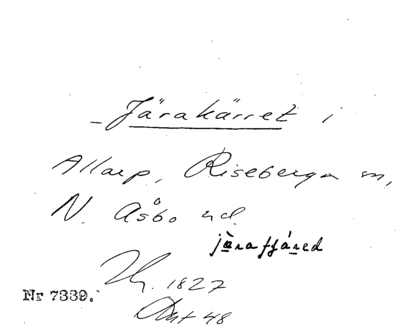 - Järakärret i
Allarp, Riseberga sn,
N. Åsbo hd.
järaffáred
1827
Nr 7339.
Akt 48